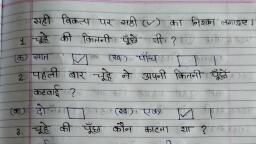 सही विकल्प पर सही (✓) का निशान लगाइए।
1. चूहे की कितनी पूँछें थी ?
(क) सात ☑ (ख) पाँच ☐
2. पहली बार चूहे ने अपनी कितनी पूँछें
कटवाई ?
(क) दो ☐ (ख) एक ☑
3. चूहे की पूँछ कौन काटता था ?